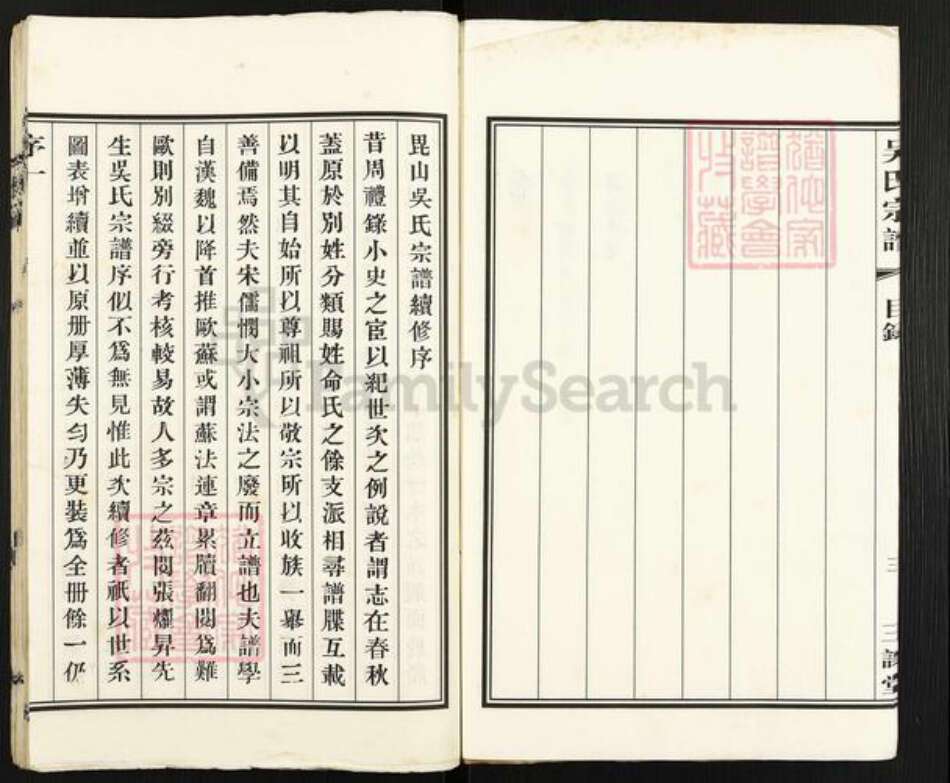 吳氏宗譜
目錄
三
三讓堂
毘山吳氏宗譜續修序
昔周禮錄小史之宦以紀世次之例說者謂志在春秋
蓋原於別姓分類賜姓命氏之餘支派相尋譜牒互載
以明其自始所以尊祖所以敬宗所以收族一舉而三
善備焉然夫宋儒憫大小宗法之廢而立譜也夫譜學
自漢魏以降首推歐蘇或謂蘇法連章累牘翻閱爲難
歐則別綴旁行考核較易故人多宗之茲閱張燿昇先
生吳氏宗譜序似不爲無見惟此次續修者祇以世系
圖表增續並以原册厚薄失勻乃更裝爲全册餘一仍
序一
收藏
譜學會
FamilySearch